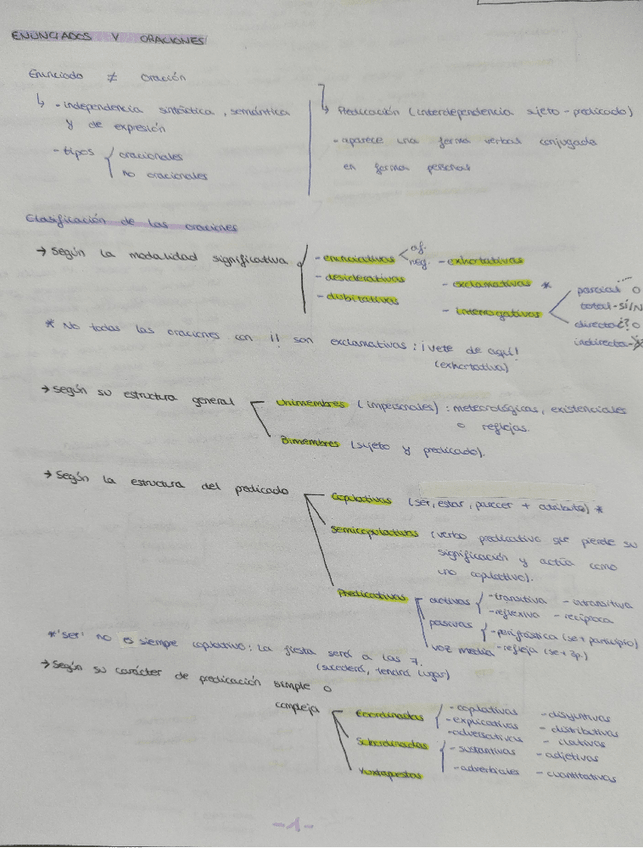 ENUNCIADOS Y ORACIONES
Enunciado ≠ Oración
↳ - independencia sintáctica, semántica
y de expresión
- tipos oracionales
no oracionales
↳ Predicación (interdependencia sujeto - predicado)
- aparece una forma verbal conjugada
en forma personal
Clasificación de las oraciones
→ Según la modalidad significativa
- enunciativas < af.
neg.
- desiderativas
- dubitativas
- exhortativas
- exclamativas *
- interrogativas
parcial
total - sí/no
directa ¿? o
indirecta
* No todas las oraciones con ¡! son exclamativas: ¡vete de aquí!
(exhortativa)
→ Según su estructura general
Unimembres (impersonales): meteorológicas, existenciales
o reflejas.
Bimembres (sujeto y predicado).
→ Según la estructura del predicado
Copulativas (ser, estar, parecer + atributo) *
Semicopulativas (verbo predicativo que pierde su
significación y actúa como
uno copulativo).
Predicativas
activas - transitiva - intransitiva
- reflexiva - recíproca
pasivas - perifrástica (ser + participio)
- refleja (se + 3p.)
voz media
* 'ser' no es siempre copulativo: La fiesta será a las 7.
(sucederá, tendrá lugar)
→ Según su carácter de predicación simple o
compleja
Coordinadas - copulativas - disyuntivas
- explicativas - distributivas
- adversativas - ilativas
Subordinadas - sustantivas - adjetivas
- adverbiales - cuantitativas
Yuxtapuestas
- 1 -